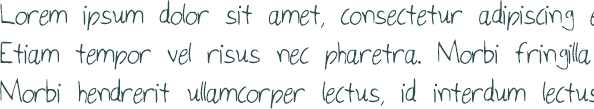 Lorem ipsum dolor sit amet, consectetur adipiscing
Etiam tempor vel risus nec pharetra. Morbi fringilla
Morbi hendrerit ullamcorper lectus, id interdum lectus